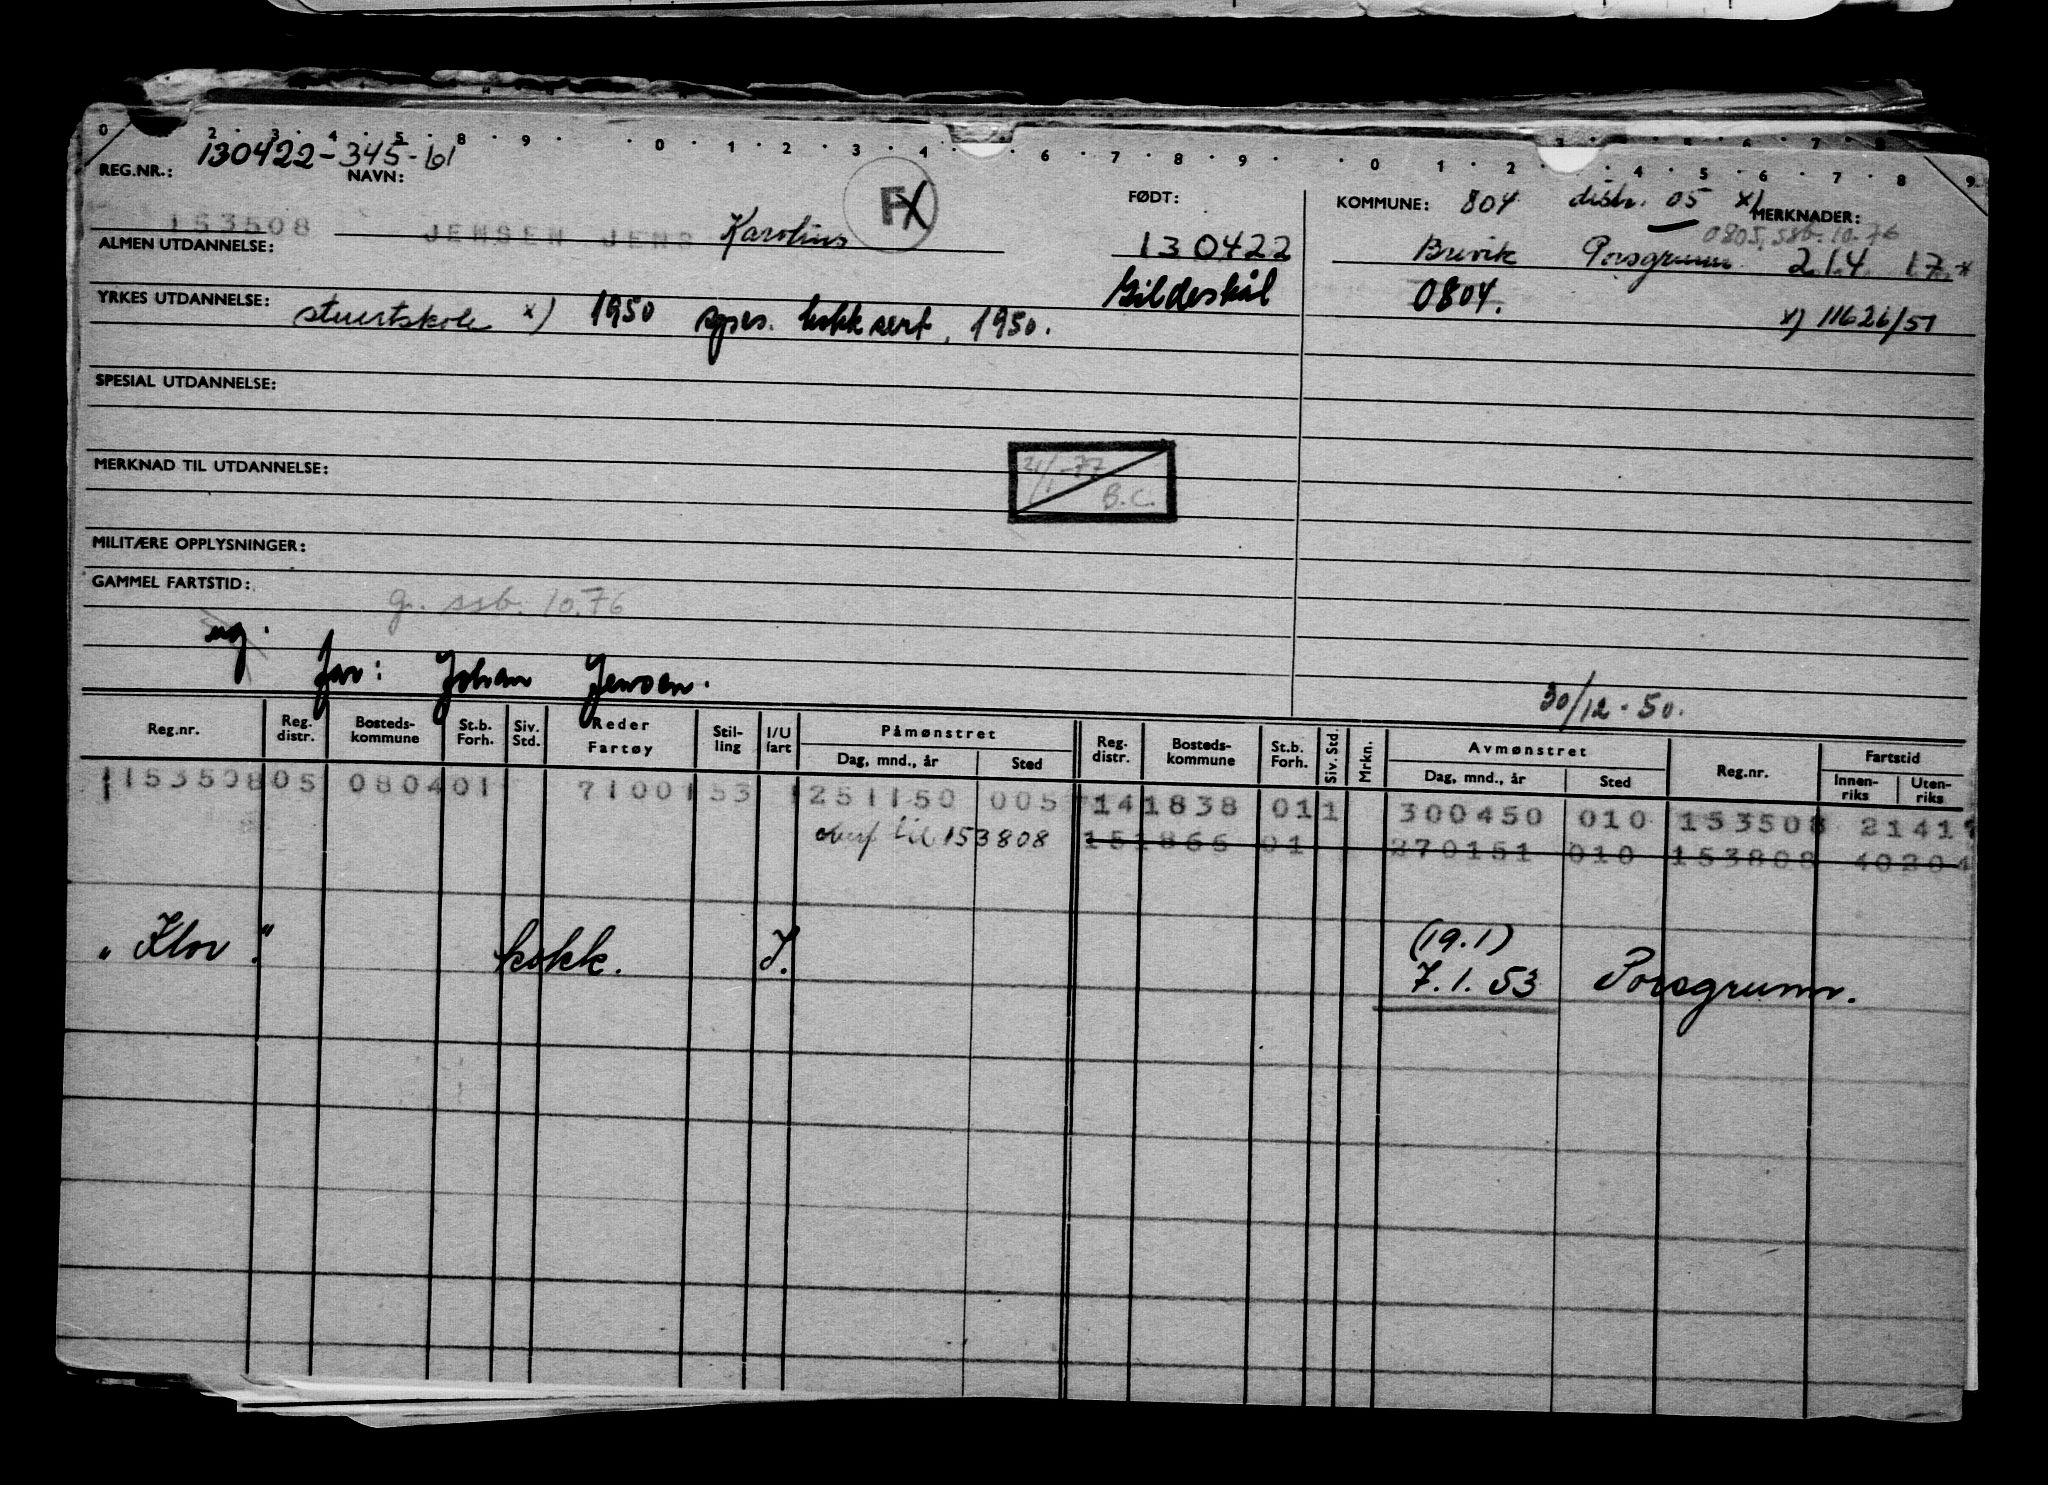 0 2 3 4 5 8 9 0 1 2 3 4 6 7 8 9 0 1 2 3 4 5 6 7 8 9
REG.NR.: 130422-345-61
NAVN:
FX
FØDT:
KOMMUNE: 804 distr. 05 x)
MERKNADER:
153508 JENSEN JENS Karolius
0805, ssb. 10.76
ALMEN UTDANNELSE:
130422 Brevik Porsgrunn 214 17 *
YRKES UTDANNELSE: stuertskole x) 1950 spes. kokk sert, 1950.
Gildeskål 0804. x) 11626/51
SPESIAL UTDANNELSE:
MERKNAD TIL UTDANNELSE:
21/1-77 B.C.
MILITÆRE OPPLYSNINGER:
GAMMEL FARTSTID:
g. ssb. 10.76
ug.
far: Johan Jensen.
30/12-50.
Reg.nr. Reg. distr. Bosteds-kommune St.b. Forh. Siv. Std. Reder Fartøy Stil-ling I/U fart Påmønstret Dag, mnd., år Sted Reg. distr. Bosteds-kommune St.b. Forh. Siv. Std. Mrkn. Avmønstret Dag, mnd., år Sted Reg.nr. Fartstid Innen-riks Uten-riks
153508 05 0804 01 7100 153 1 251150 005 141838 011 300450 010 153508 21417
overf til 153808 151866 01 270151 010 153808 40204
"Klor." kokk. I. (19.1)
7.1.53 Porsgrunn.